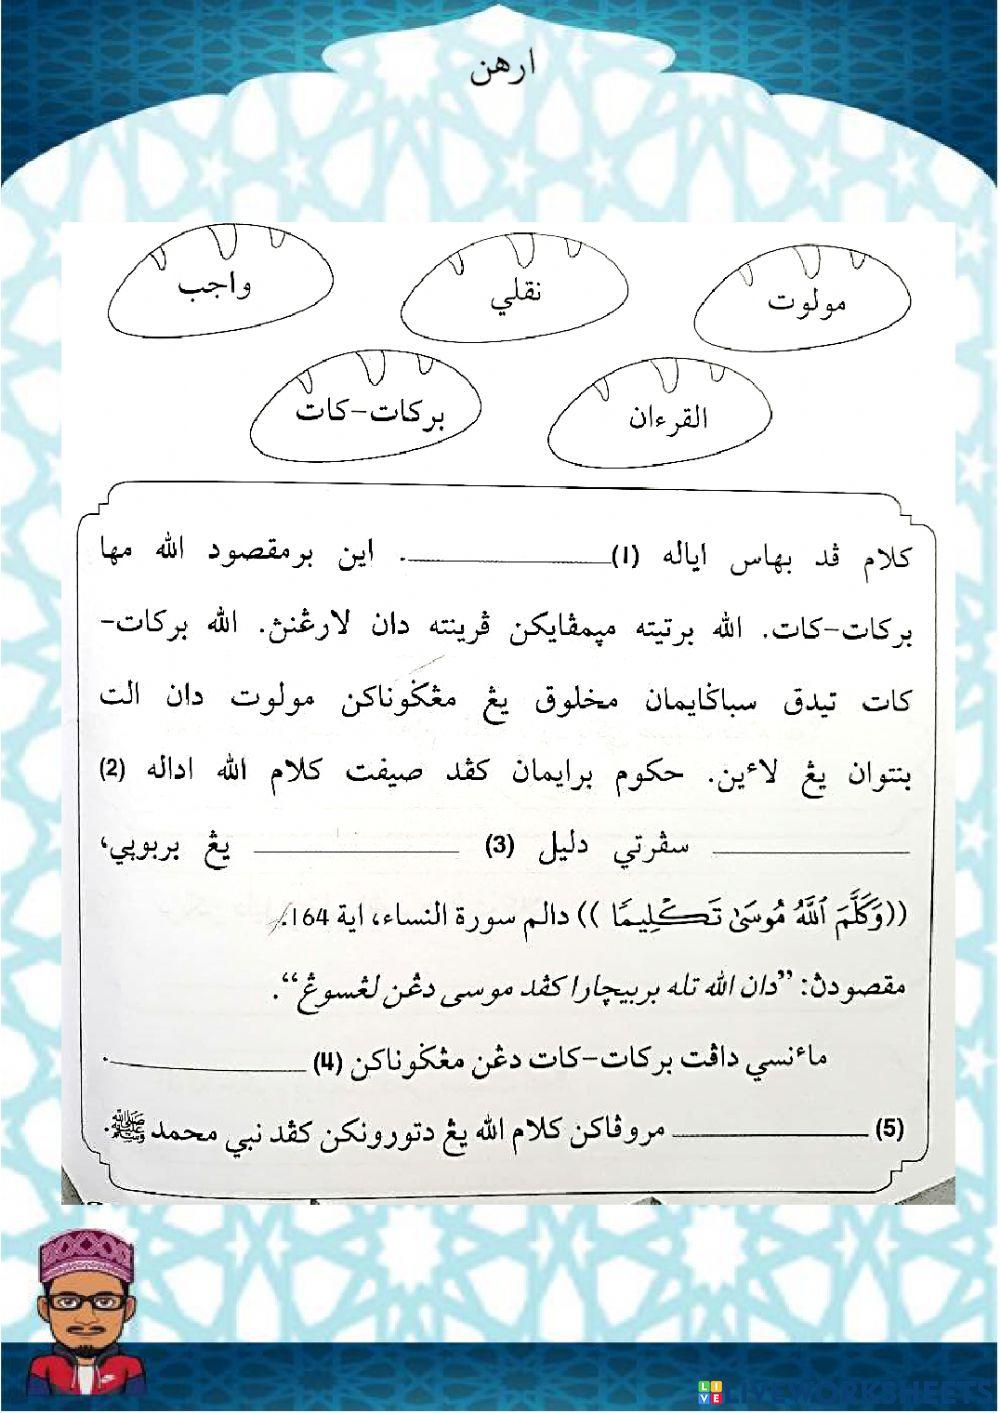 ارهن
واجب
نقلي
مولوت
برکات-کات
القرءان
کلام ڤد بهاس اياله (1) ______. اين برمقصود الله مها
برکات-کات. الله برتيته ميمڤايکن ڤرينته دان لارڠنڽ. الله برکات-
کات تيدق سباݢايمان مخلوق يڠ مڠݢوناکن مولوت دان الت
بنتوان يڠ لاءين. حکوم برايمان کڤد صيفت کلام الله اداله (2)
______ سڤرتي دليل (3) ______ يڠ بربوڽي،
((وَكَلَّمَ ٱللَّهُ مُوسَىٰ تَكْلِيمًا)) دالم سورة النساء، اية 164.
مقصودڽ: ”دان الله تله بربيچارا کڤد موسى دڠن لڠسوڠ“.
ماءنسي داڤت برکات-کات دڠن مڠݢوناکن (4) ______.
(5) ______ مروڤاکن کلام الله يڠ دتورونکن کڤد نبي محمد ﷺ.
LIVE LIVEWORKSHEETS